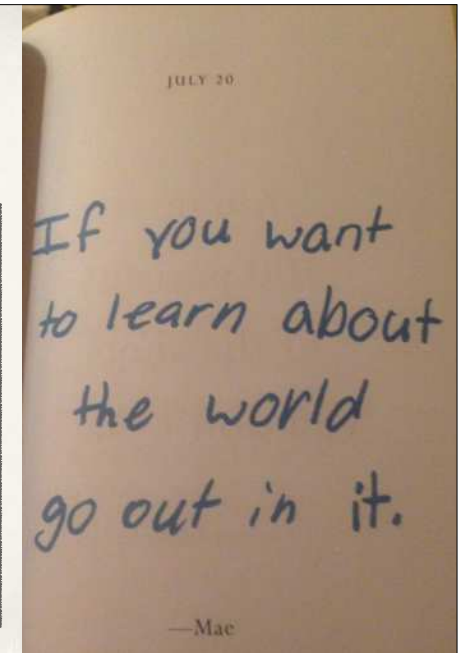 JULY 20
If you want
to learn about
the world
go out in it.
—Mae